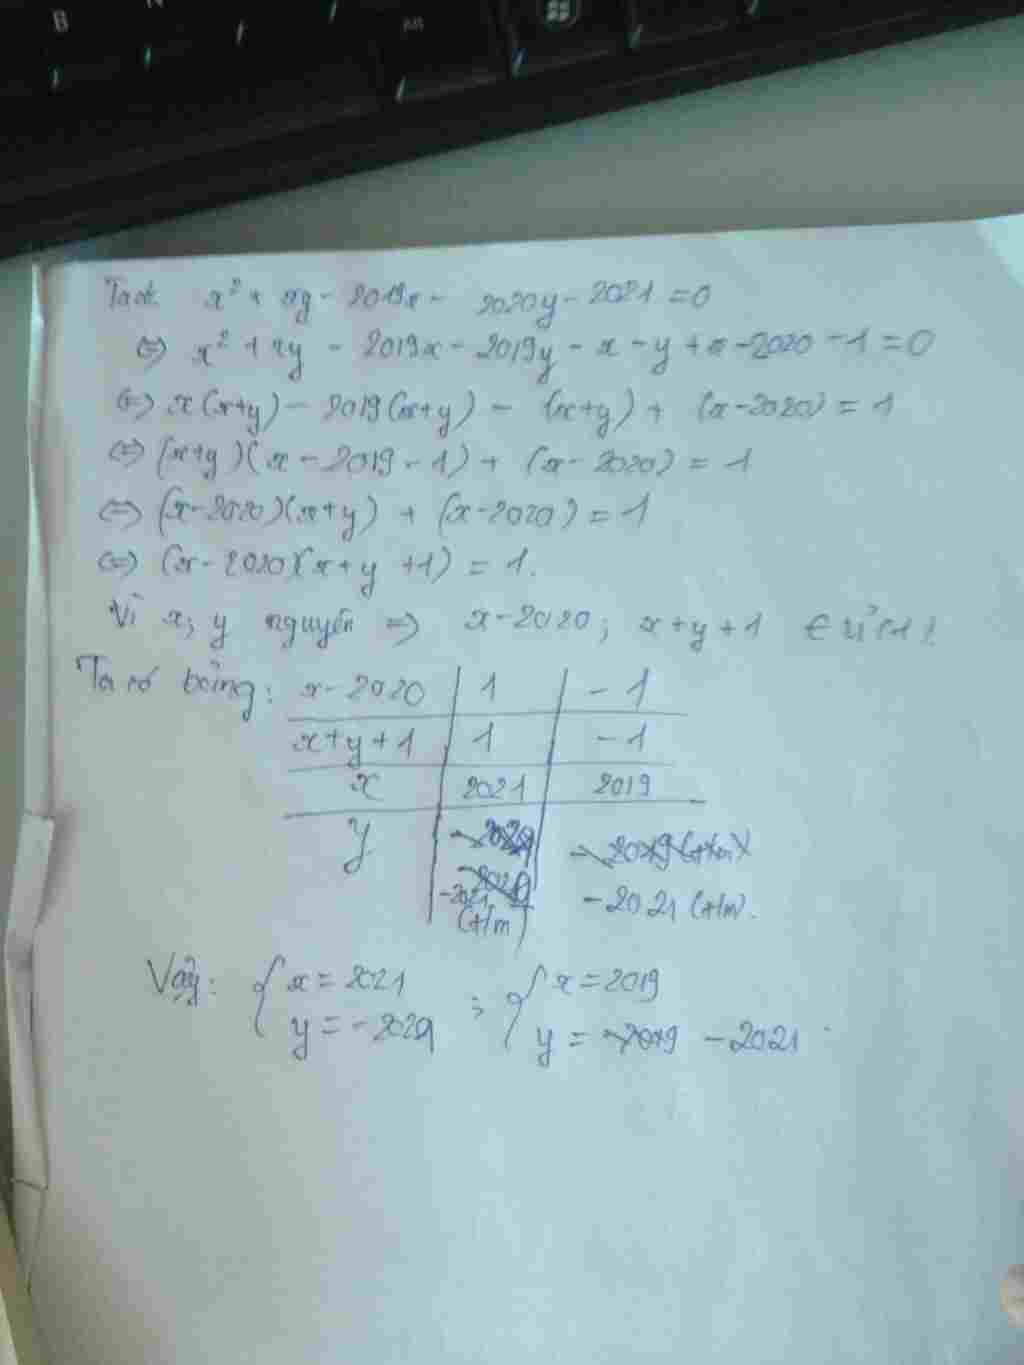 Ta có: x² + xy - 2019x - 2020y - 2021 = 0
⇔ x² + xy - 2019x - 2019y - x - y + x - 2020 - 1 = 0
⇔ x(x+y) - 2019(x+y) - (x+y) + (x-2020) = 1
⇔ (x+y)(x - 2019 - 1) + (x - 2020) = 1
⇔ (x-2020)(x+y) + (x-2020) = 1
⇔ (x-2020)(x+y+1) = 1.
Vì x; y nguyên ⇒ x-2020; x+y+1 ∈ Ư(1)
Ta có bảng: x-2020 | 1 | -1
x+y+1 | 1 | -1
x | 2021 | 2019
y
-2021 (t/m) -2021 (t/m).
Vậy: { x = 2021 ; { x = 2019
y = -2021 y = -2021